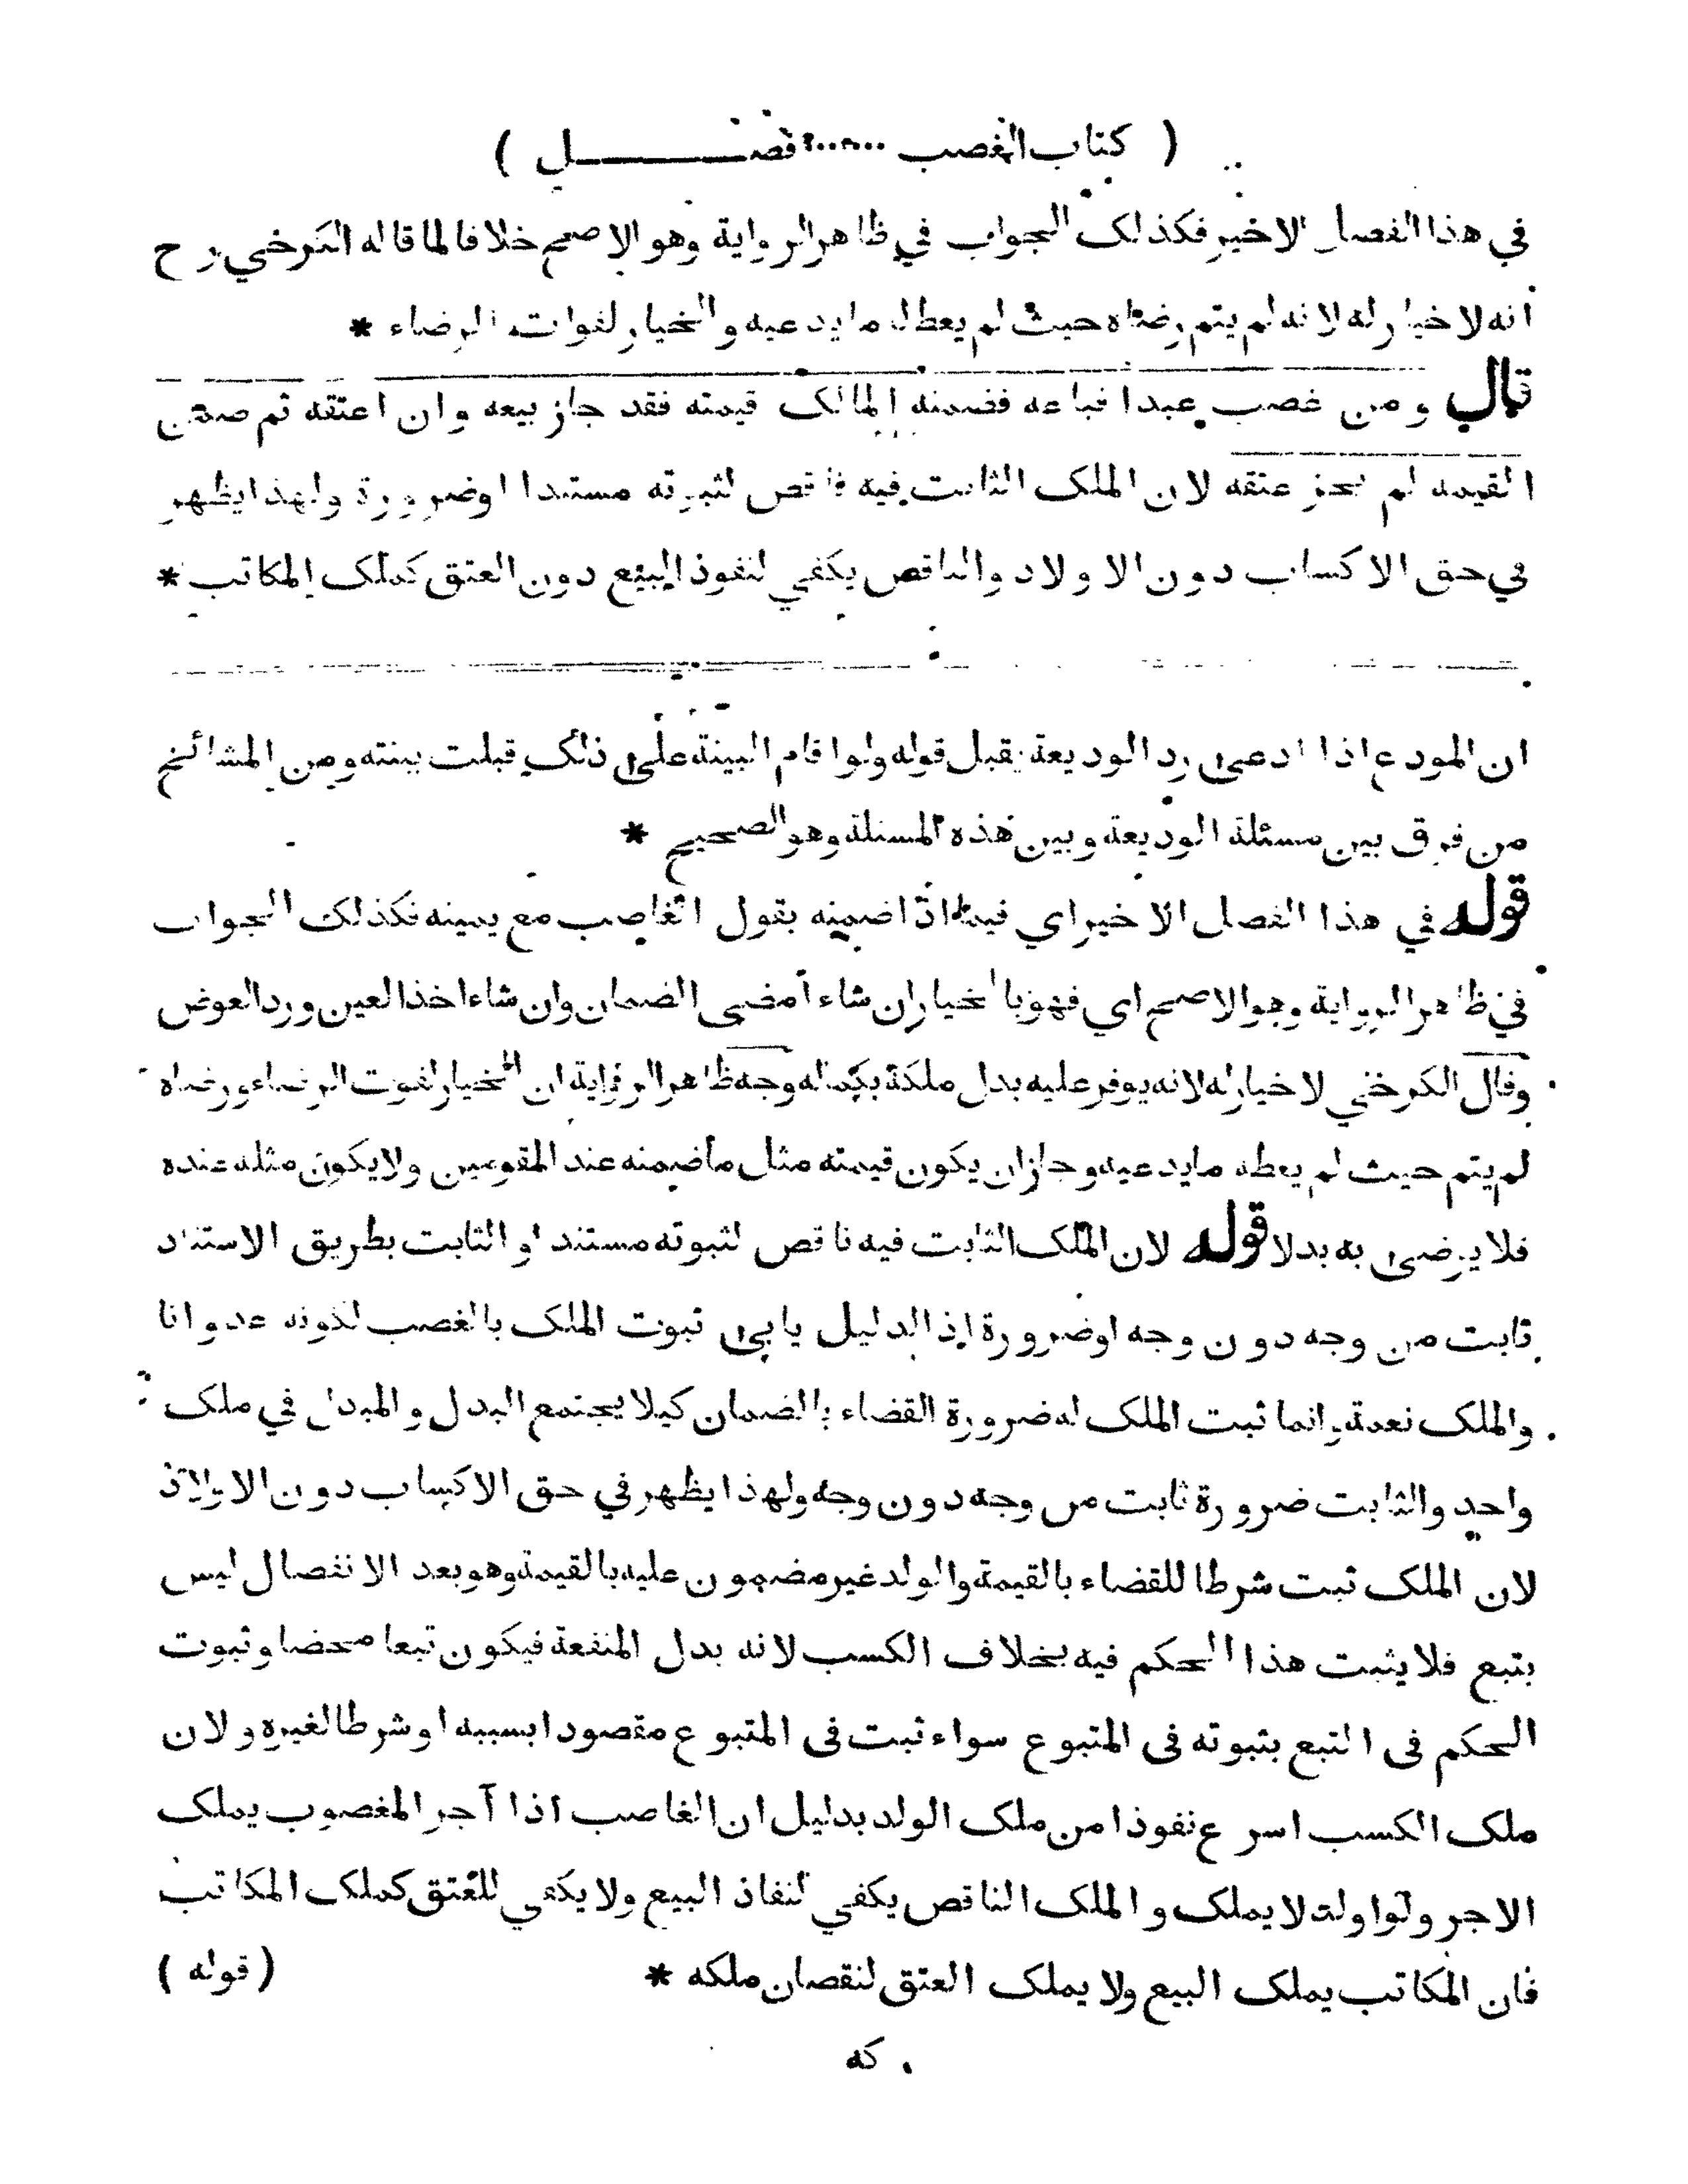 ( كتاب الغصب ...... فصـــــل )
في هذا الفصل الاخير فكذلك الجواب في ظاهر الرواية وهو الاصح خلافا لما قاله الكرخي رح
انه لا خيار له لانه لم يتم رضاه حيث لم يعط له ما يدعيه والخيار لفوات الرضاء *
قال ومن غصب عبدا فباعه فضمنه المالك قيمته فقد جاز بيعه وان اعتقه ثم ضمن
القيمة لم يجز عتقه لان الملك الثابت فيه ناقص لثبوته مستندا اوضرورة ولهذا يظهر
في حق الاكساب دون الاولاد والناقص يكفي لنفوذ البيع دون العتق كملك المكاتب *
ان المودع اذا ادعى رد الوديعة يقبل قوله ولو اقام البينة على ذلك قبلت بينته ومن المشائخ
من فرق بين مسئلة الوديعة وبين هذه المسئلة وهو الصحيح *
قوله في هذا الفصل الاخير اي فيما اذا ضمنه بقول الغاصب مع يمينه فكذلك الجواب
في ظاهر الرواية وهو الاصح اي فهو بالخيار ان شاء امضى الضمان وان شاء اخذ العين ورد العوض
وقال الكرخي لا خيار له لانه يوفر عليه بدل ملكه بكماله وجه ظاهر الرواية ان الخيار لفوت الرضاء ورضاه
لم يتم حيث لم يعطه ما يدعيه وجاز ان يكون قيمته مثل ما ضمنه عند المقومين ولا يكون مثله عنده
فلا يرضى به بدلا قوله لان الملك الثابت فيه ناقص لثبوته مستندا و الثابت بطريق الاستناد
ثابت من وجه دون وجه اوضرورة اذ الدليل يابى ثبوت الملك بالغصب لكونه عدوانا
والملك نعمة وانما ثبت الملك له ضرورة القضاء بالضمان كيلا يجتمع البدل والمبدل في ملك
واحد والثابت ضرورة ثابت من وجه دون وجه ولهذا يظهر في حق الاكساب دون الاولاد
لان الملك ثبت شرطا للقضاء بالقيمة والولد غير مضمون عليه بالقيمة وهو بعد الانفصال ليس
بتبع فلا يثبت هذا الحكم فيه بخلاف الكسب لانه بدل المنفعة فيكون تبعا محضا وثبوت
الحكم فى التبع بثبوته فى المتبوع سواء ثبت فى المتبوع مقصودا بسببه او شرطا لغيره ولان
ملك الكسب اسرع نفوذا من ملك الولد بدليل ان الغاصب اذا آجر المغصوب يملك
الاجر ولو اولد لا يملك و الملك الناقص يكفي لنفاذ البيع ولا يكفي للعتق كملك المكاتب
فان المكاتب يملك البيع ولا يملك العتق لنقصان ملكه * ( قوله )
كه